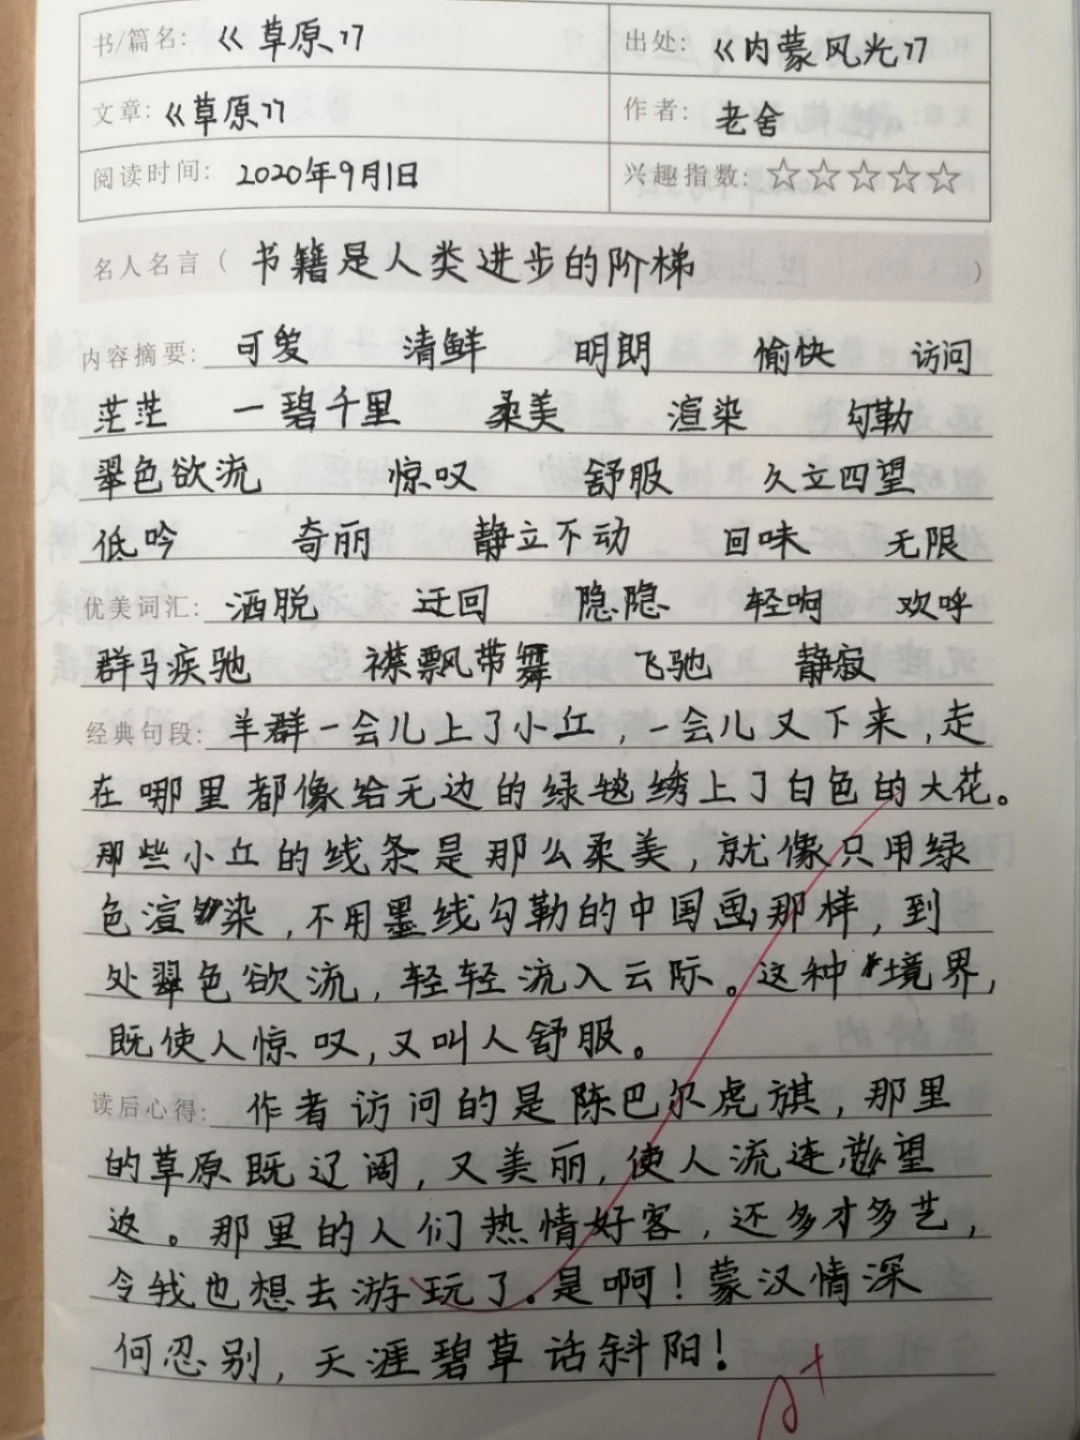 书/篇名: 《草原》 出处: 《内蒙风光》
文章: 《草原》 作者: 老舍
阅读时间: 2020年9月1日 兴趣指数: ☆☆☆☆☆
名人名言 ( 书籍是人类进步的阶梯 )
内容摘要: 可爱 清鲜 明朗 愉快 访问
茫茫 一碧千里 柔美 渲染 勾勒
翠色欲流 惊叹 舒服 久立四望
低吟 奇丽 静立不动 回味 无限
优美词汇: 洒脱 迂回 隐隐 轻啊 欢呼
群马疾驰 襟飘带舞 飞驰 静寂
经典句段: 羊群一会儿上了小丘,一会儿又下来,走
在哪里都像给无边的绿毯绣上了白色的大花。
那些小丘的线条是那么柔美,就像只用绿
色渲染,不用墨线勾勒的中国画那样,到
处翠色欲流,轻轻流入云际。这种境界,
既使人惊叹,又叫人舒服。
读后心得: 作者访问的是陈巴尔虎旗,那里
的草原既辽阔,又美丽,使人流连忘望
返。那里的人们热情好客,还多才多艺,
令我也想去游玩了。是啊!蒙汉情深
何忍别,天涯碧草话斜阳!
A+